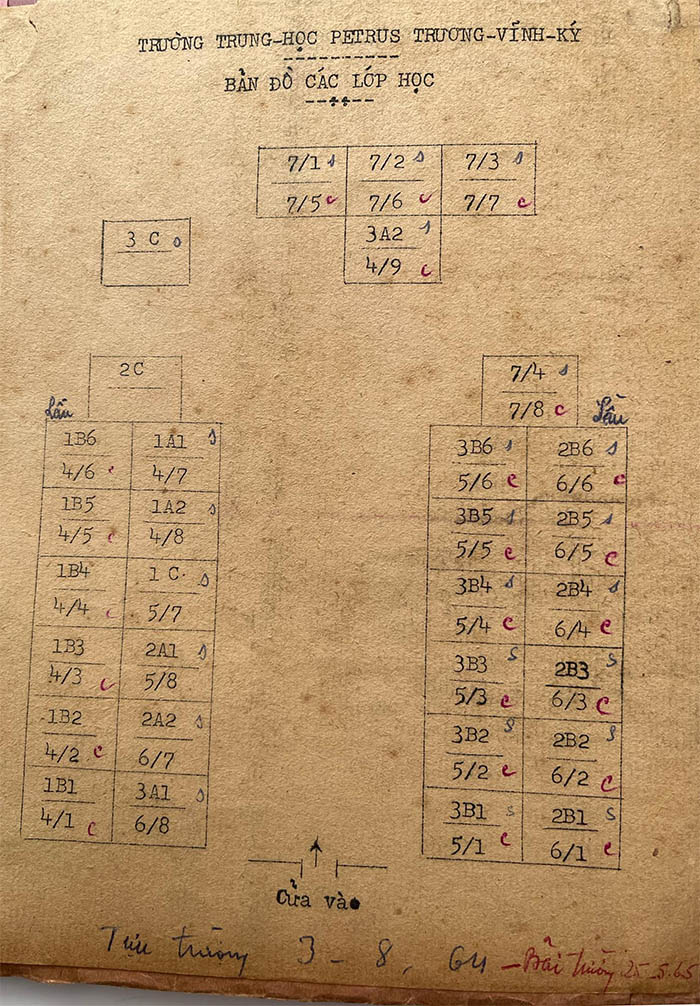 TRƯỜNG TRUNG-HỌC PETRUS TRƯƠNG-VĨNH-KÝ
BẢN ĐỒ CÁC LỚP HỌC
7/1 s 7/2 s 7/3 s
7/5 c 7/6 c 7/7 c
3A2 s
4/9 c
3 C s
2C
7/4 s
7/8 c
Lầu
Lầu
1B6 1A1 s
4/6 c 4/7
1B5 1A2 s
4/5 c 4/8
1B4 1 C s
4/4 c 5/7
1B3 2A1 s
4/3 c 5/8
1B2 2A2 s
4/2 c 6/7
1B1 3A1 s
4/1 c 6/8
3B6 s 2B6 s
5/6 c 6/6 c
3B5 s 2B5 s
5/5 c 6/5 c
3B4 s 2B4 s
5/4 c 6/4 c
3B3 s 2B3 s
5/3 c 6/3 c
3B2 s 2B2 s
5/2 c 6/2 c
3B1 s 2B1 s
5/1 c 6/1 c
Cửa vào
Tựu trường 3 - 8, 64 - Bãi trường 25-5-65